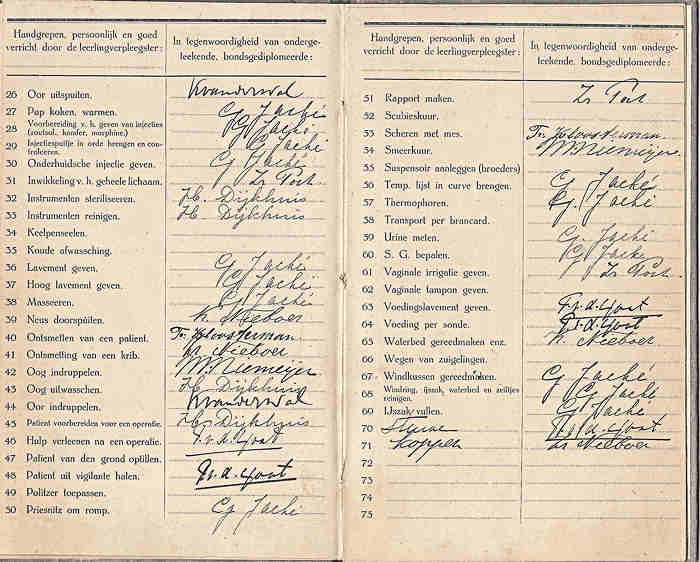 Handgrepen, persoonlijk en goed
verricht door de leerlingverpleegster:
In tegenwoordigheid van onderge-
teekende, bondsgediplomeerde:
26 Oor uitspuiten. Kvanderwal
27 Pap koken, warmen. Cg Jaché
28 Voorbereiding v. h. geven van injecties
(zoutsol., kamfer, morphine.) Cg Jaché
29 Injectiespuitje in orde brengen en con-
troleeren. Cg Jaché
30 Onderhuidsche injectie geven. Cg Jaché
31 Inwikkeling v. h. geheele lichaam. Zr Post
32 Instrumenten steriliseeren. H. Dijkhuis
33 Instrumenten reinigen. H. Dijkhuis
34 Keelpenseelen.
35 Koude afwassching.
36 Lavement geven. Cg Jaché
37 Hoog lavement geven. Cg Jaché
38 Masseeren. Cg Jaché
39 Neus doorspuiten. Nieboer
40 Ontsmetten van een patient. Tr. Kloosterman
41 Ontsmetting van een krib. Nieboer
42 Oog indruppelen. Niemeijer
43 Oog uitwasschen. H. Dijkhuis
44 Oor indruppelen. Kvanderwal
45 Patient voorbereiden voor een operatie. H. Dijkhuis
46 Hulp verleenen na een operatie. v. d. Goot
47 Patient van den grond optillen.
48 Patient uit vigilante halen. v. d. Goot
49 Politzer toepassen.
50 Priesnitz om romp. Cg Jaché
Handgrepen, persoonlijk en goed
verricht door de leerlingverpleegster:
In tegenwoordigheid van onderge-
teekende, bondsgediplomeerde:
51 Rapport maken. Zr Post
52 Scubieskuur.
53 Scheren met mes. Tr. Kloosterman
54 Smeerkuur. Niemeijer
55 Suspensoir aanleggen (broeders)
56 Temp. lijst in curve brengen. Cg Jaché
57 Thermophoren. Cg. Jaché
58 Transport per brancard.
59 Urine meten. Cg. Jaché
60 S. G. bepalen. Cg Jaché
61 Vaginale irrigatie geven. Zr Post
62 Vaginale tampon geven.
63 Voedingslavement geven. v. d. Goot
64 Voeding per sonde. v. d. Goot
65 Waterbed gereedmaken enz. Nieboer
66 Wegen van zuigelingen.
67 Windkussen gereedmaken. Cg Jaché
68 Windring, ijszak, waterbed en zeiltjes
reinigen. Cg Jaché
69 IJszak vullen. Cg Jaché
70 v. d. Goot
71 Koppen Nieboer
72
73
74
75